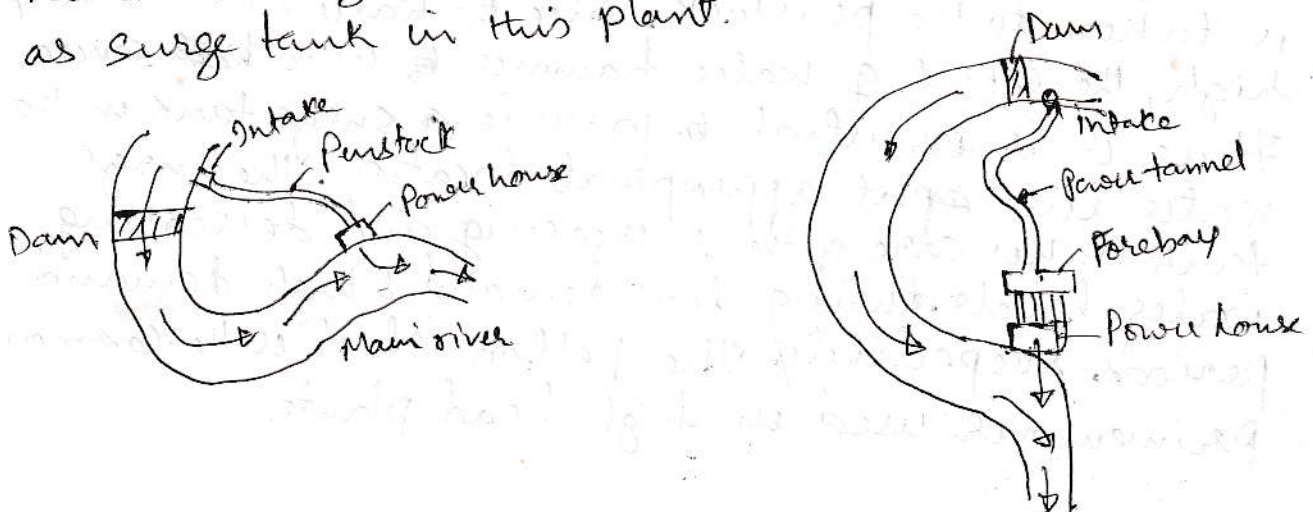 as surge tank in this plant.
Intake
Penstock
Power house
Dam
Main river
Dam
Intake
Power tunnel
Forebay
Power house